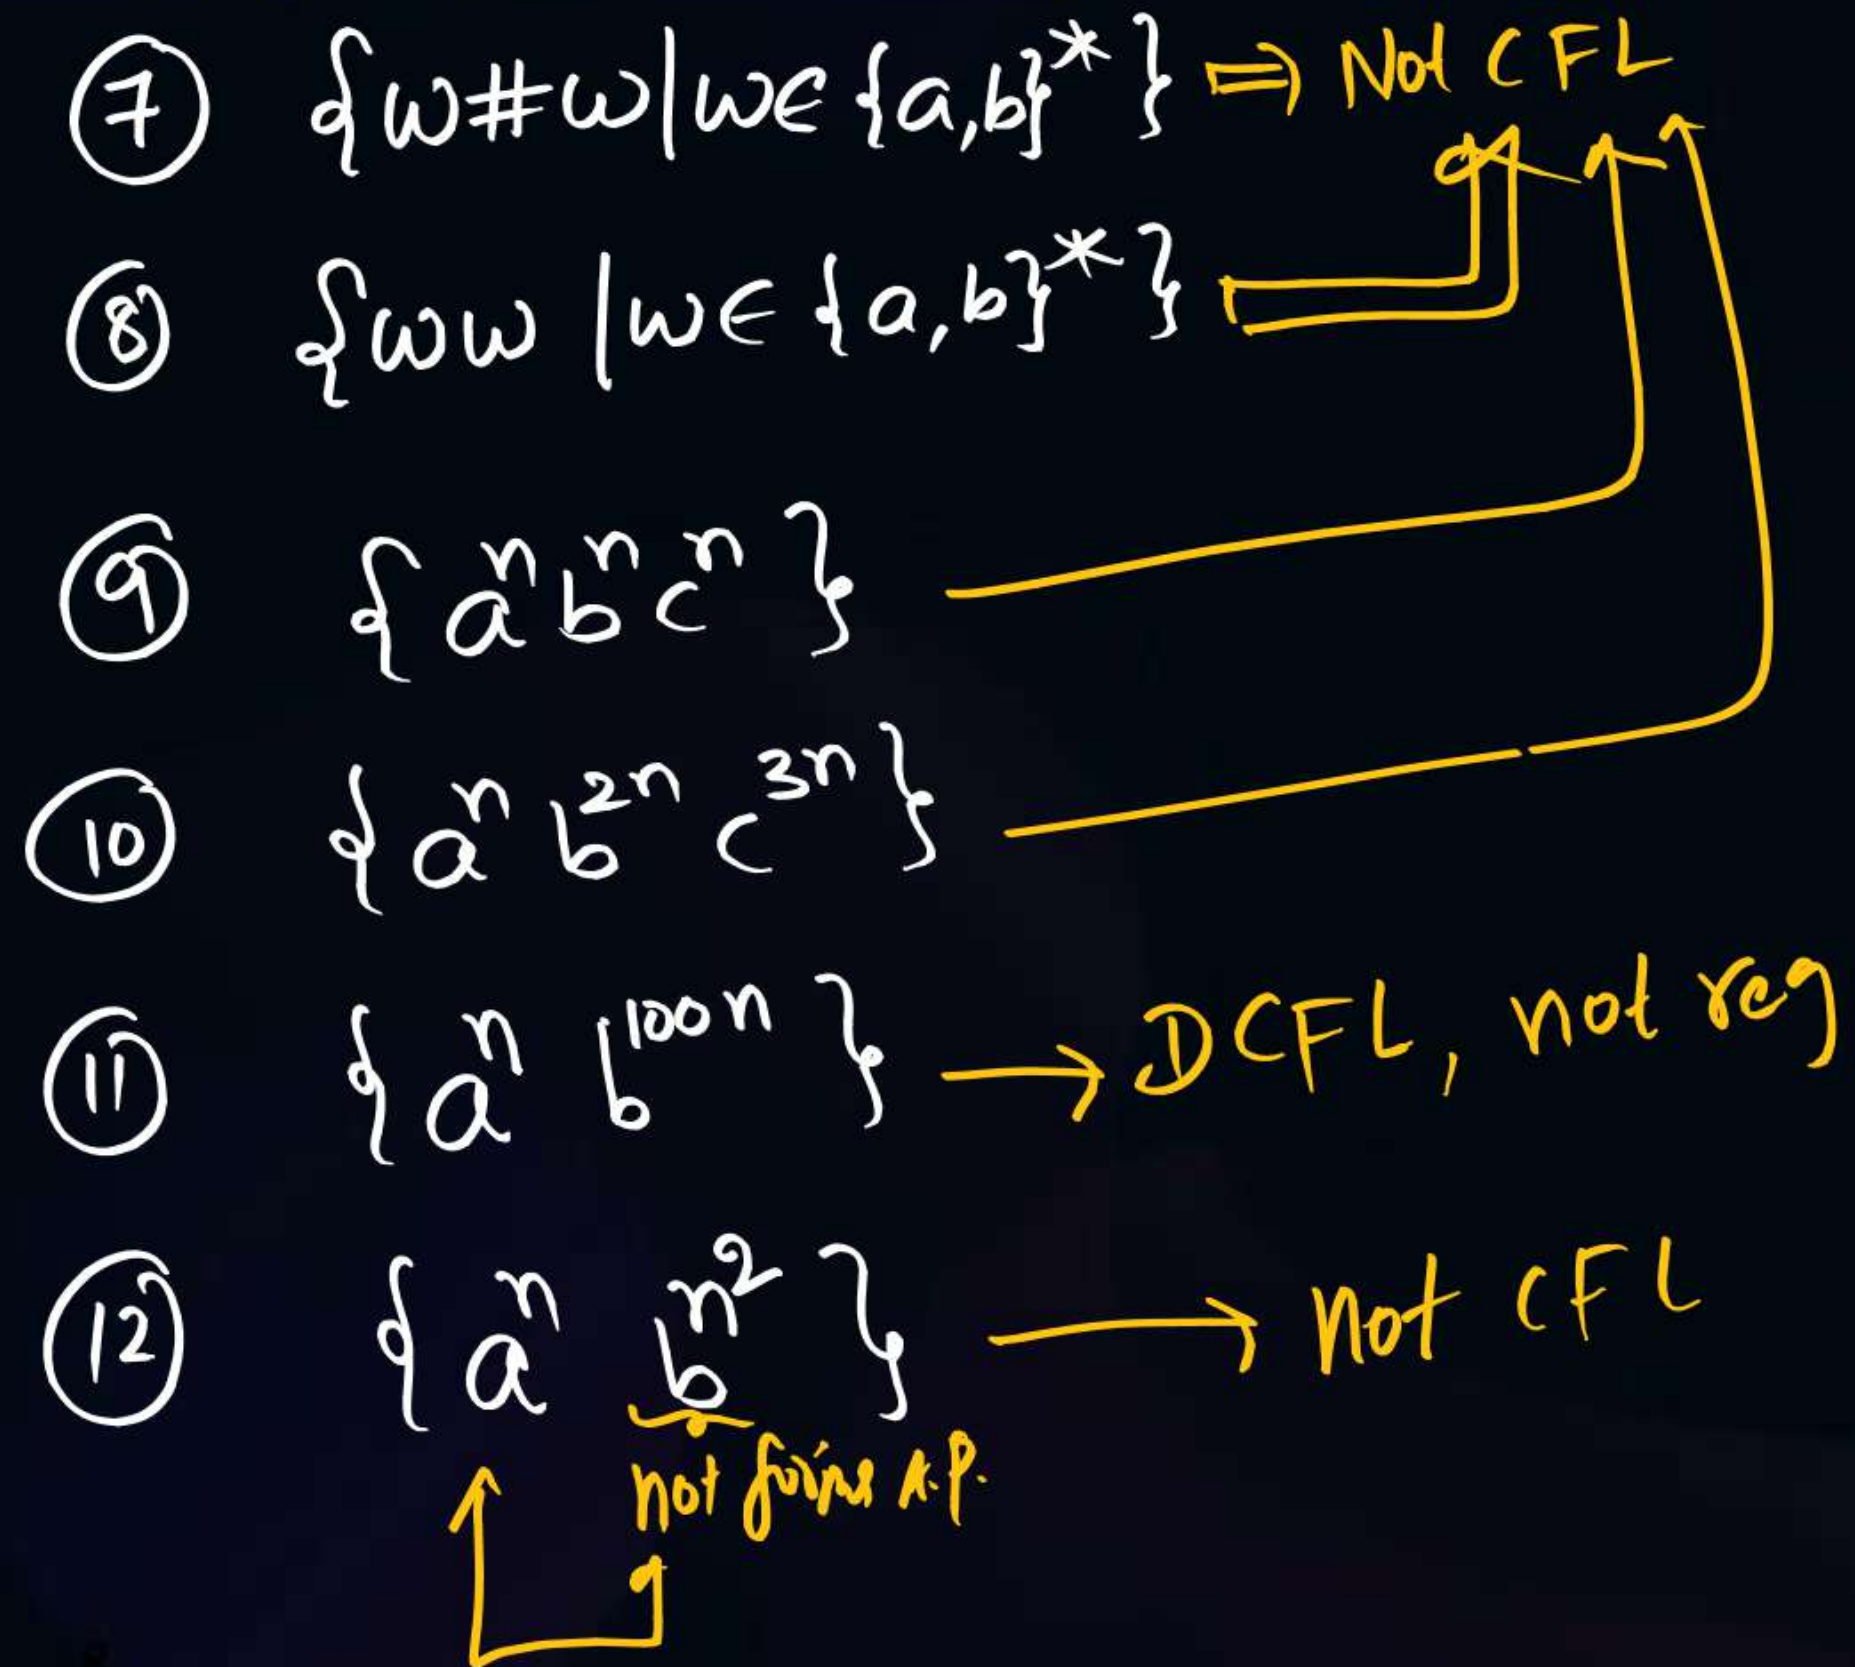 ⑦ {w#w|w∈{a,b}*} ⇒ Not CFL
⑧ {ww |w∈ {a,b}*}
⑨ {aⁿbⁿcⁿ}
⑩ {aⁿ b²ⁿ c³ⁿ}
⑪ {aⁿ b¹⁰⁰ⁿ} → DCFL, not reg
⑫ {aⁿ b^n²} → not CFL
not A.P.